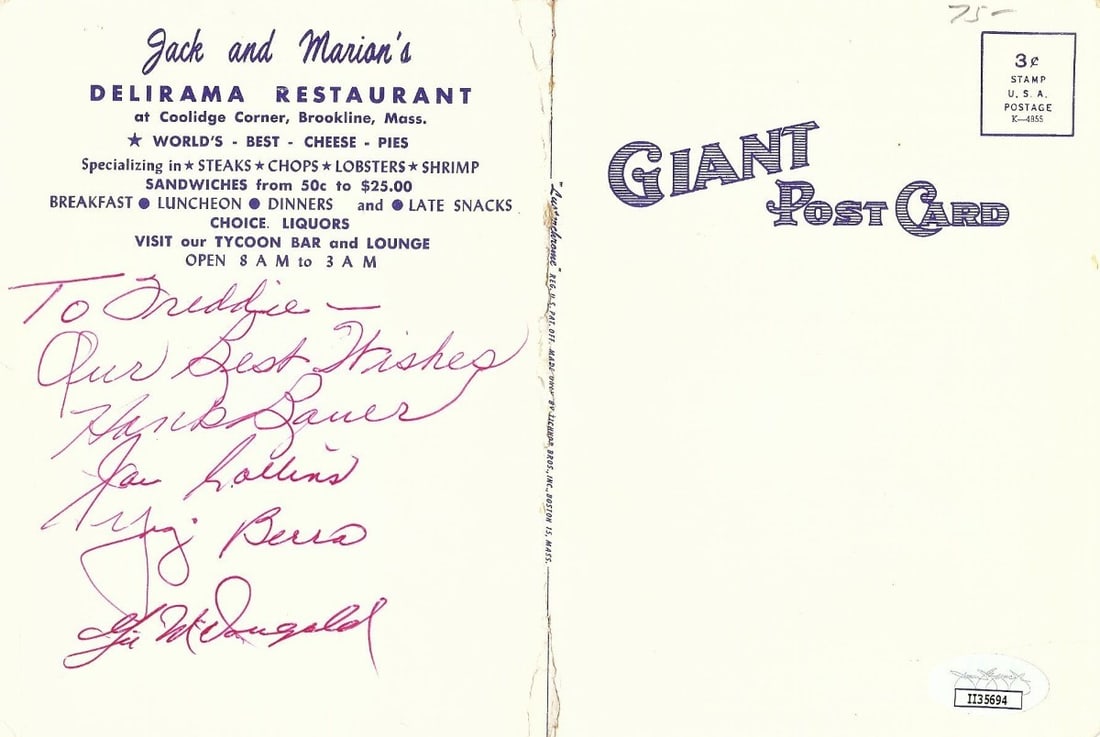 Jack and Marion's
DELIRAMA RESTAURANT
at Coolidge Corner, Brookline, Mass.
★ WORLD'S - BEST - CHEESE - PIES
Specializing in ★ STEAKS ★ CHOPS ★ LOBSTERS ★ SHRIMP
SANDWICHES from 50c to $25.00
BREAKFAST ● LUNCHEON ● DINNERS and ● LATE SNACKS
CHOICE. LIQUORS
VISIT our TYCOON BAR and LOUNGE
OPEN 8 A M to 3 A M
To Freddie —
Our Best Wishes
Hank Bauer
Joe Collins
Yogi Berra
Gil McDougald
"Lusterchrome" REG. U.S. PAT. OFF. MADE ONLY BY TICHNOR BROS., INC., BOSTON 15, MASS.
75-
3¢
STAMP
U. S. A.
POSTAGE
K—4855
GIANT
POST CARD
II35694